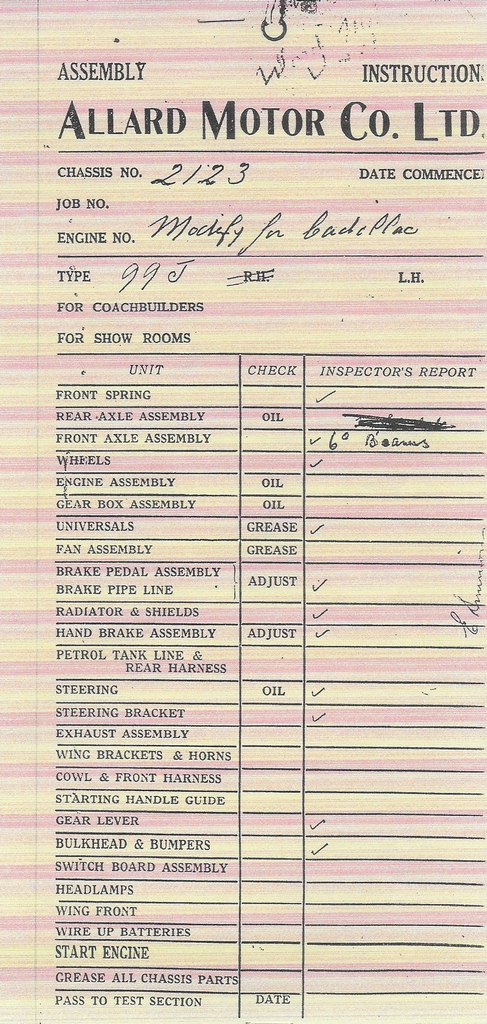 ASSEMBLY INSTRUCTION
ALLARD MOTOR CO. LTD.
CHASSIS NO. 2123 DATE COMMENCE
JOB NO.
ENGINE NO. Modify for Cadillac
TYPE 99J R.H. L.H.
FOR COACHBUILDERS
FOR SHOW ROOMS
UNIT CHECK INSPECTOR'S REPORT
FRONT SPRING ✓
REAR AXLE ASSEMBLY OIL
FRONT AXLE ASSEMBLY ✓ 6° Beams
WHEELS ✓
ENGINE ASSEMBLY OIL
GEAR BOX ASSEMBLY OIL
UNIVERSALS GREASE ✓
FAN ASSEMBLY GREASE
BRAKE PEDAL ASSEMBLY
BRAKE PIPE LINE ADJUST ✓
RADIATOR & SHIELDS ✓
HAND BRAKE ASSEMBLY ADJUST ✓
PETROL TANK LINE &
REAR HARNESS
STEERING OIL ✓
STEERING BRACKET ✓
EXHAUST ASSEMBLY
WING BRACKETS & HORNS
COWL & FRONT HARNESS
STARTING HANDLE GUIDE
GEAR LEVER ✓
BULKHEAD & BUMPERS ✓
SWITCH BOARD ASSEMBLY
HEADLAMPS
WING FRONT
WIRE UP BATTERIES
START ENGINE
GREASE ALL CHASSIS PARTS
PASS TO TEST SECTION DATE